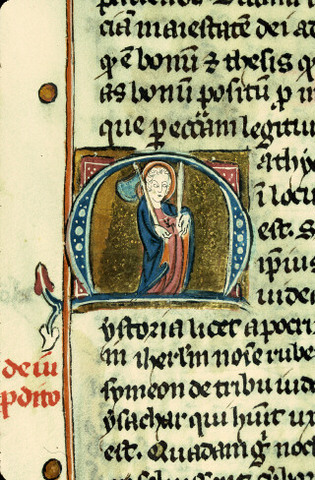 ciā maiestatē dei at
qͥ ē bonū ⁊ thesis q
as bonū positū p̄ in
que p̄ eccām legitur
athi
ī locu
est. S
ip̄ius
uidea
ystoria licet apocri
in iherl̄m noīe rube
symeon de tribu iude
ysachar qui hūit ux
est. Quadam ḡ noct
de iu
pdito